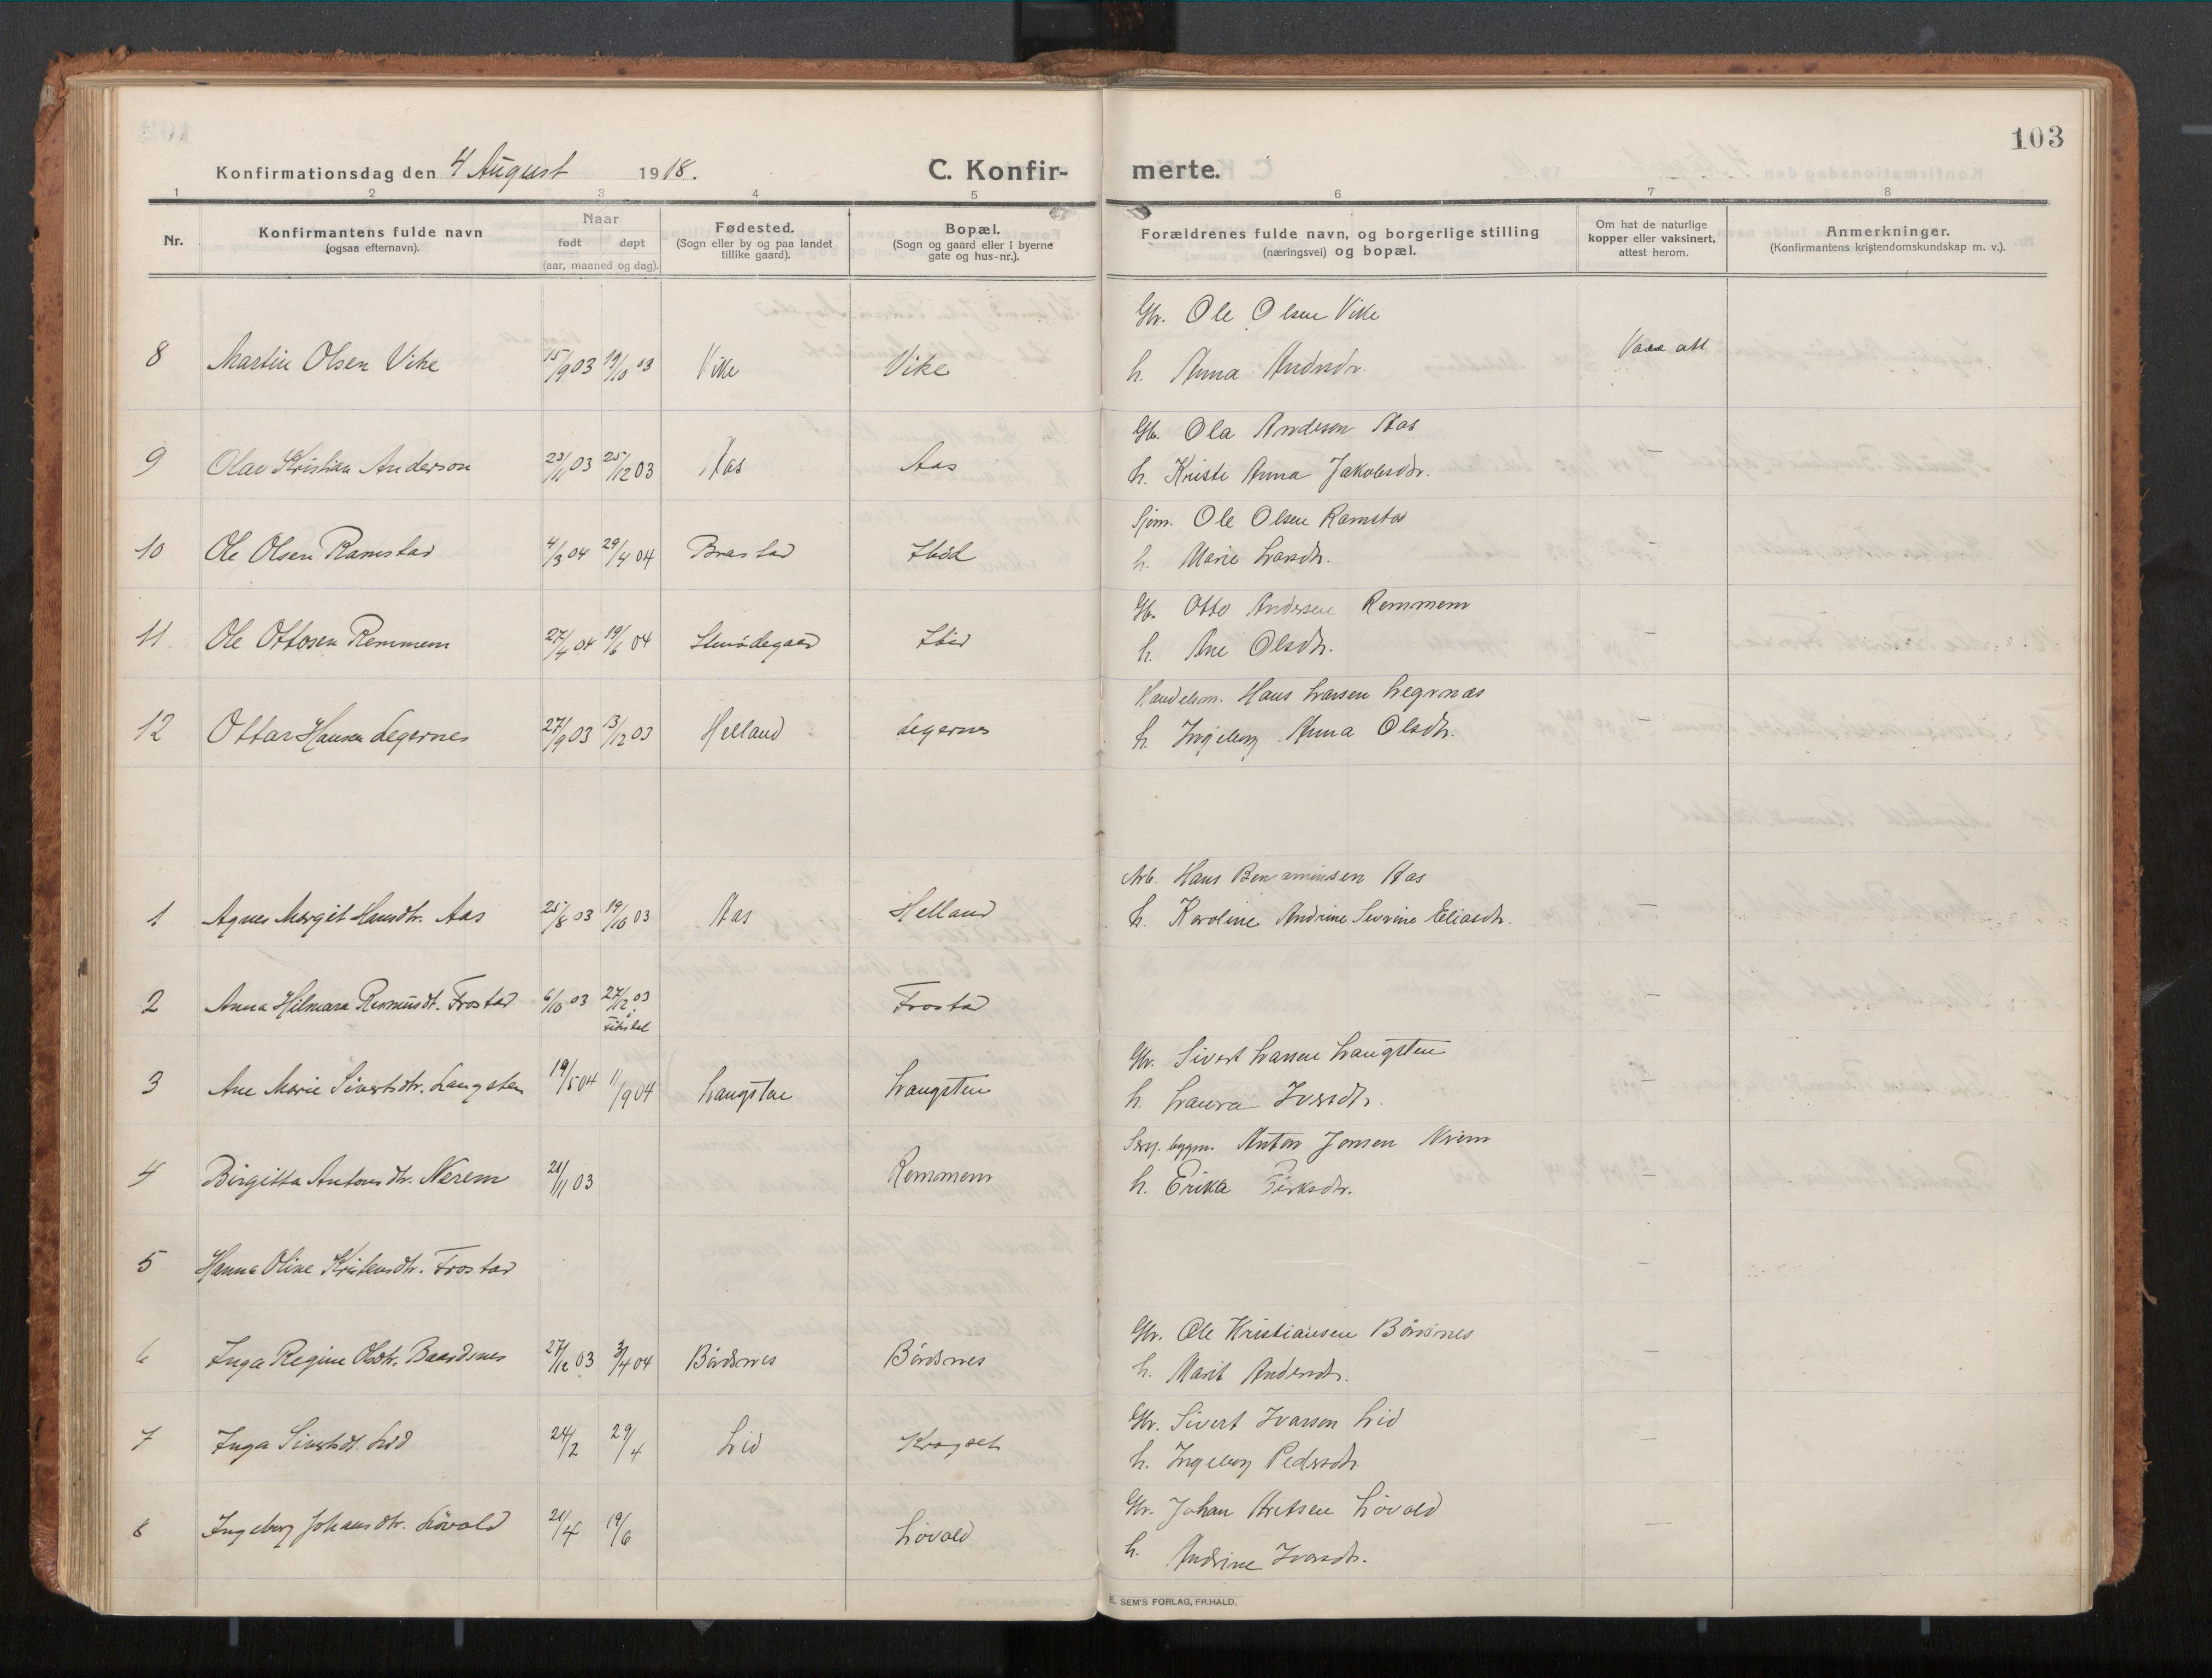 103
Konfirmationsdag den 4 August 1918.
C. Konfir-merte.
1 2 3 4 5 6 7 8
Nr.
Konfirmantens fulde navn
(ogsaa efternavn).
Naar
født døpt
(aar, maaned og dag).
Fødested.
(Sogn eller by og paa landet
tillike gaard).
Bopæl.
(Sogn og gaard eller i byerne
gate og hus-nr.).
Forældrenes fulde navn, og borgerlige stilling
(næringsvei) og bopæl.
Om hat de naturlige
kopper eller vaksinert,
attest herom.
Anmerkninger.
(Konfirmantens kristendomskundskap m. v.).
Gbr. Ole Olsen Vike
8 Martin Olsen Vike 15/9 03 19/10 03 Vike Vike h. Anna Andrsdr. att
Gbr. Ola Andersen Aas
9 Olav Kristian Anderson 23/11 03 25/12 03 Aas Aas h. Kristi Anna Jakobsdtr. –
Sjøm. Ole Olsen Ramstad
10 Ole Olsen Ramstad 4/3 04 29/4 04 Brastad Ibid h. Marie Larsdtr. –
Gbr. Otto Andersen Remmem
11 Ole Ottosen Remmem 27/4 04 19/6 04 Ibid h. Ane Olsdtr. –
Handelsm. Hans Larsen Legernes
12 Ottar Hansen Legernes 27/9 03 13/12 03 Helland Legernes h. Ingeborg Anna Olsdtr. –
Arb. Hans Benjaminsen Aas
1 Agnes Margit Hansdtr. Aas 25/8 03 19/10 03 Aas Helland h. Karoline Andrine Severine Eliasdtr. –
2 Anna Hilmara Rasmusdt. Frostad 6/10 03 27/12 03 Frostad –
i
Gbr. Sivert Larsen Langsten
3 Ane Marie Sivertsdtr. Langsten 19/5 04 11/9 04 Langsten Langsten h. Laura Iversdtr. –
byggm. Anton Jonsen Nerem
4 Birgitta Antonsdtr. Nerem 21/11 03 Remmem h. Erika –
5 Hanna Oline Kristensdtr. Frostad –
Gbr. Ole Kristiansen Bårdsnes
6 Inga Regine Olsdtr. Baardsnes 27/12 03 3/4 04 Bårdsnes Bårdsnes h. Marit Andersdtr. –
Gbr. Sivert Ivarson Lid
7 Inga Sivertsdt. Lid 24/2 29/4 Lid Kragset h. Ingeborg Pedersdtr. –
Gbr. Johan Løvold
8 Ingeborg Johansdtr. Løvold 21/4 19/6 Løvold h. Andrine Iversdtr. –
E. SEM'S FORLAG, FR.HALD.